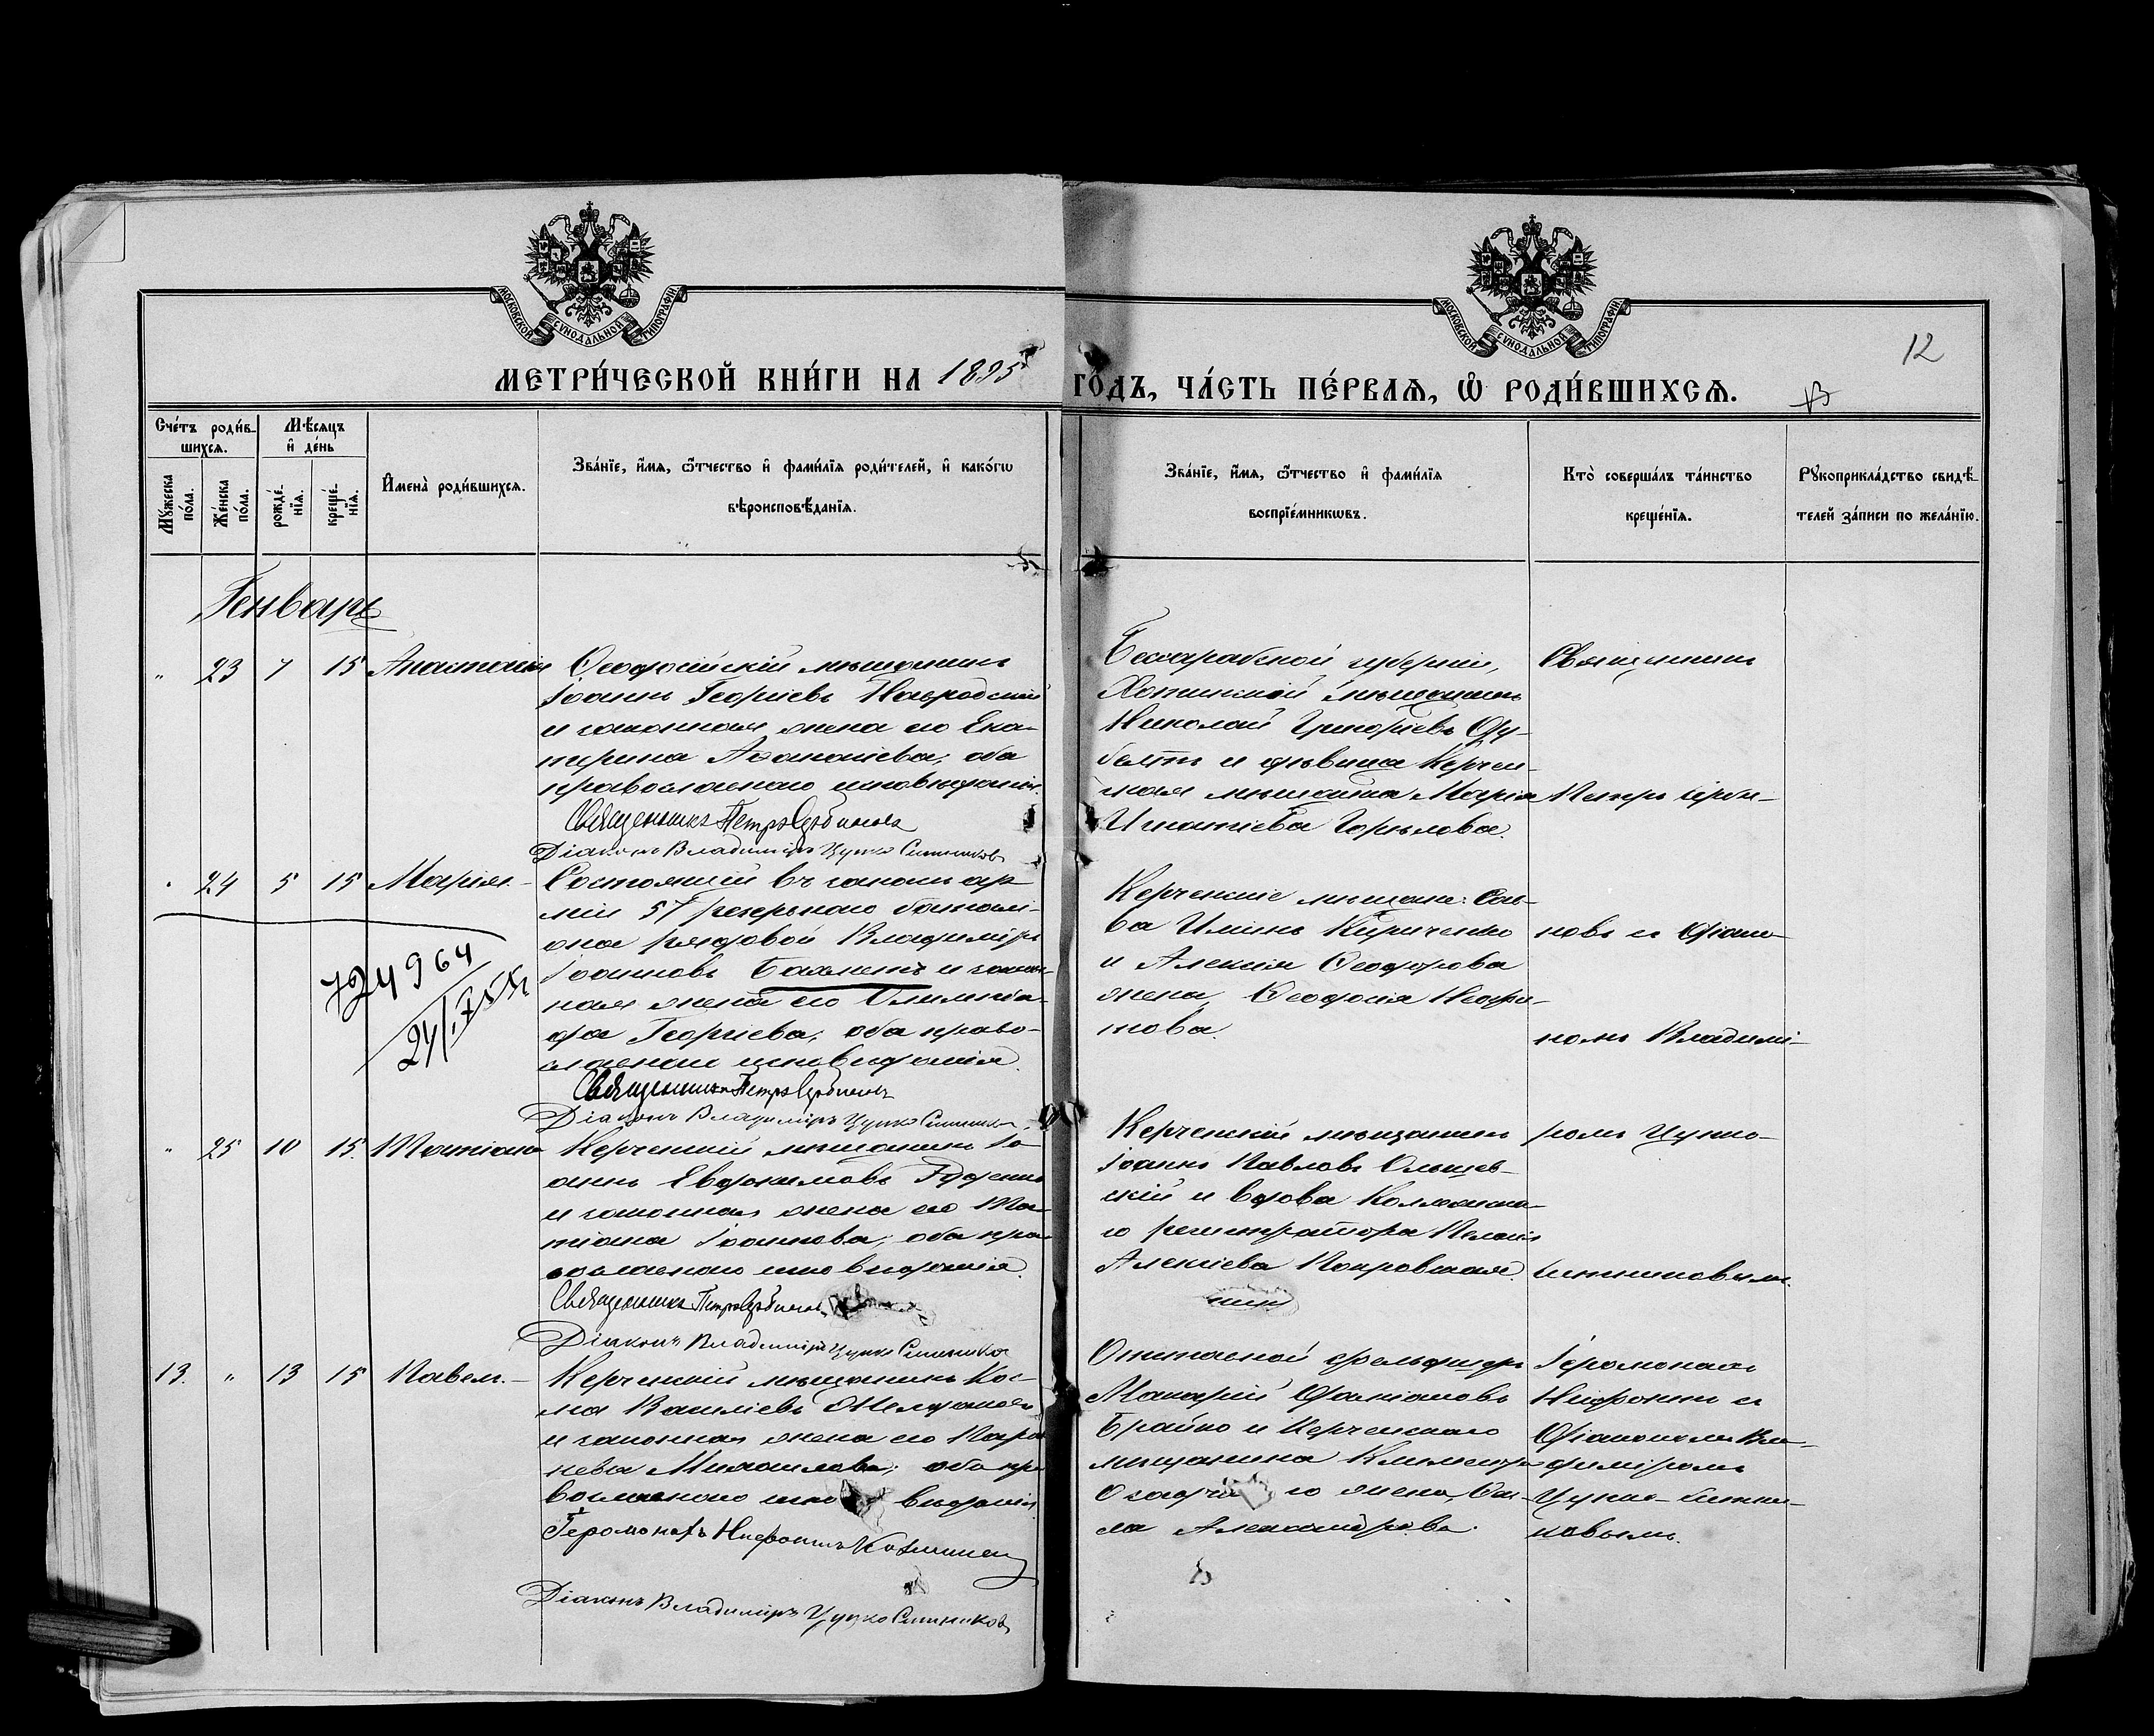 МОСКОВСКОЙ СУНОДАЛЬНОЙ ТИПОГРАФІИ
МОСКОВСКОЙ СУНОДАЛЬНОЙ ТИПОГРАФІИ
12
МЕТРИ́ЧЕСКОЙ КНИ́ГИ НА 1895 ГО́ДЪ, ЧА́СТЬ ПЕ́РВАѦ, Ѡ҆ РОДИ́ВШИХСѦ.
Сче́тъ роди́в-
шихсѧ.
Мꙋ́жеска по́ла.
Же́нска по́ла.
Мѣ́сѧцъ
и҆ де́нь
рожде́-
нїѧ.
креще́-
нїѧ.
И҆мена̀ роди́вшихсѧ.
Зва́нїе, и҆́мѧ, ѻ҆́тчество и҆ фами́лїѧ роди́телей, и҆ како́гѡ
вѣроисповѣ́данїѧ.
Зва́нїе, и҆́мѧ, ѻ҆́тчество и҆ фами́лїѧ
воспрїе́мникѡвъ.
Кто̀ соверша́лъ та́инство
креще́нїѧ.
Рꙋкоприкла́дство свидѣ́-
телей за́писи по жела́нїю.
Генварь
" 23 7 15 Анастасія
Ѳеодосійскій мѣщанинъ
Іоаннъ Георгіевъ Навродскій
и законная жена его Ека-
терина Аѳанасіева, оба
православнаго исповѣданія.
Священникъ Петръ Сербиновъ
Діаконъ Владиміръ Цупко Ситниковъ
Бессарабской губерніи,
Хотинскій мѣщанинъ
Николай Григоріевъ
и дѣвица Керчен-
ская мѣщанка Марія
Игнатіева Горылова.
Священникъ
Петръ Серби-
" 24 5 15 Марія.
Состоящій въ запасѣ ар-
міи 57 резервнаго баталі-
она рядовой Владиміръ
Іоанновъ Бахметъ и закон-
ная жена его Олимпіа-
да Георгіева, оба право-
славнаго исповѣданія.
Священникъ Петръ Сербиновъ
Діаконъ Владиміръ Цупко Ситниковъ
Керченскіе мѣщане: Сав-
ва Ильинъ Кириченко
и Алексія Ѳеодорова
жена, Ѳеодосія
новъ и Діако-
номъ Владимі-
" 25 10 15. Татіана
Керченскій мѣщанинъ Іо-
аннъ Евдокимовъ
и законная жена его Та-
тіана Іоаннова, оба пра-
вославнаго исповѣданія.
Священникъ Петръ Сербиновъ
Діаконъ Владиміръ Цупко Ситниковъ
Керченскій мѣщанинъ
Іоаннъ Павловъ Ольшев-
скій и вдова Коллежска-
го регистратора Пелагія
Алексіева Покровская.
ромъ Цупко-
Ситниковымъ.
13. " 13 15 Павелъ.
Керченскій мѣщанинъ Кос-
ма Василіевъ
и законная жена его Парас-
кева Михаилова, оба пра-
вославнаго испо вѣданія
Іеромонахъ Нифонтъ
Діаконъ Владиміръ Цупко Ситниковъ
Отставной фельдшеръ
Макарій Даміановъ
Брайко и Керченскаго
мѣщанина
го жена,
Александрова.
Іеромонахъ
Нифонтъ и
Діакономъ Вла-
диміромъ
Цупко-Ситни-
ковымъ.